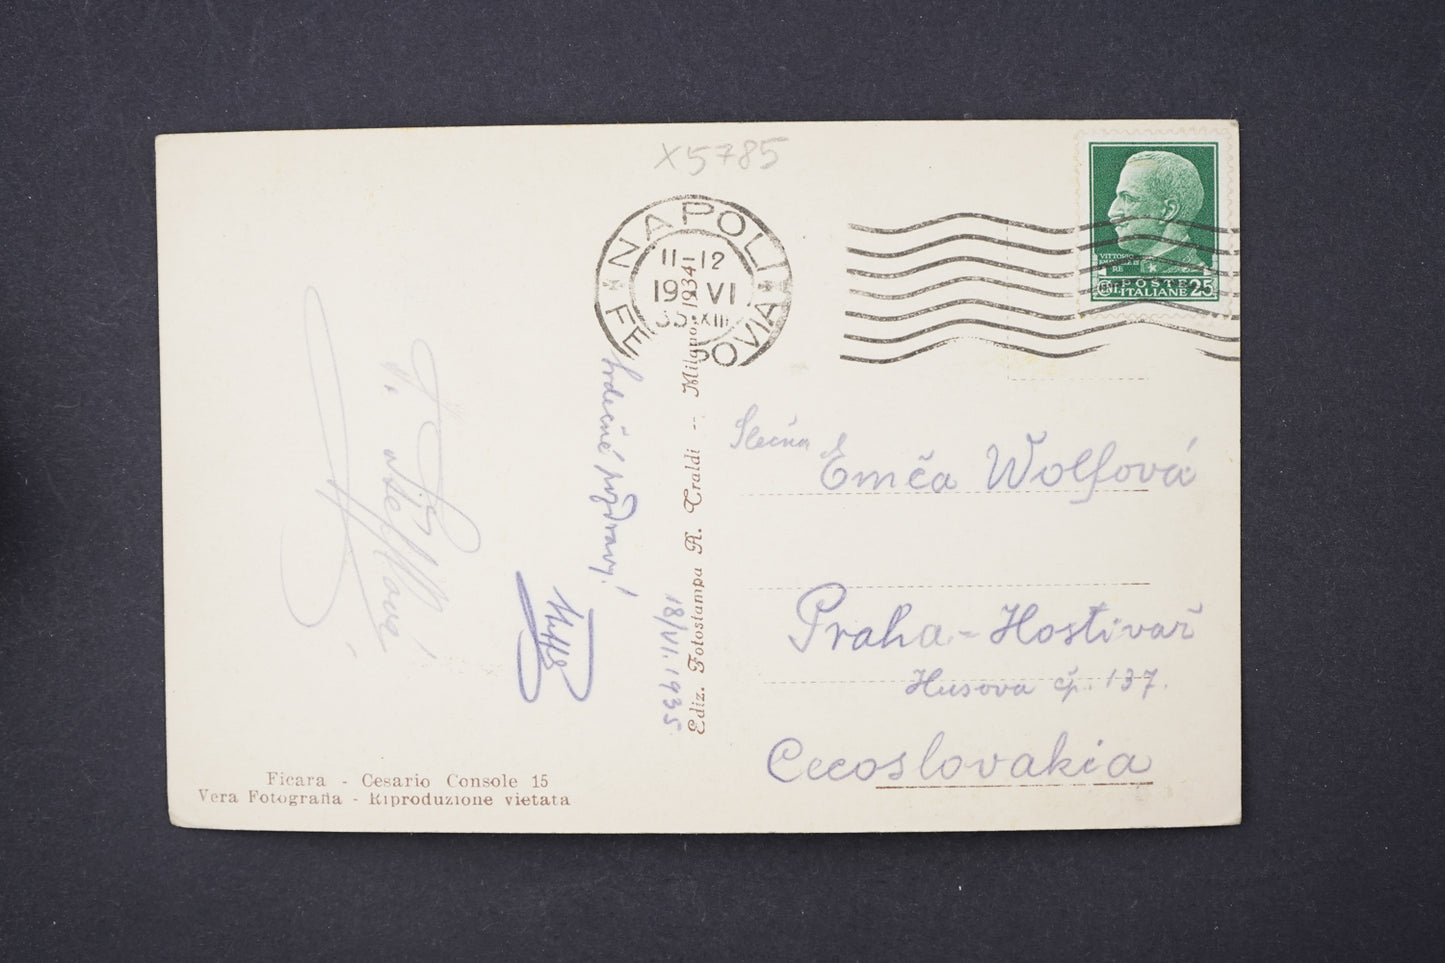 X5785
NAPOLI
11-12
19 VI
35 XIII
FERROVIA
VITTORIO
RE
POSTE
ITALIANE 25
Srdečné pozdravy!
18/VI. 1935
Ediz. Fotostampa A. Traldi -- Milano 1934
Slečna
Emča Wolfová
Praha - Hostivař
Husova čp. 137.
Cecoslovakia
Ficara - Cesario Console 15
Vera Fotografia - Riproduzione vietata